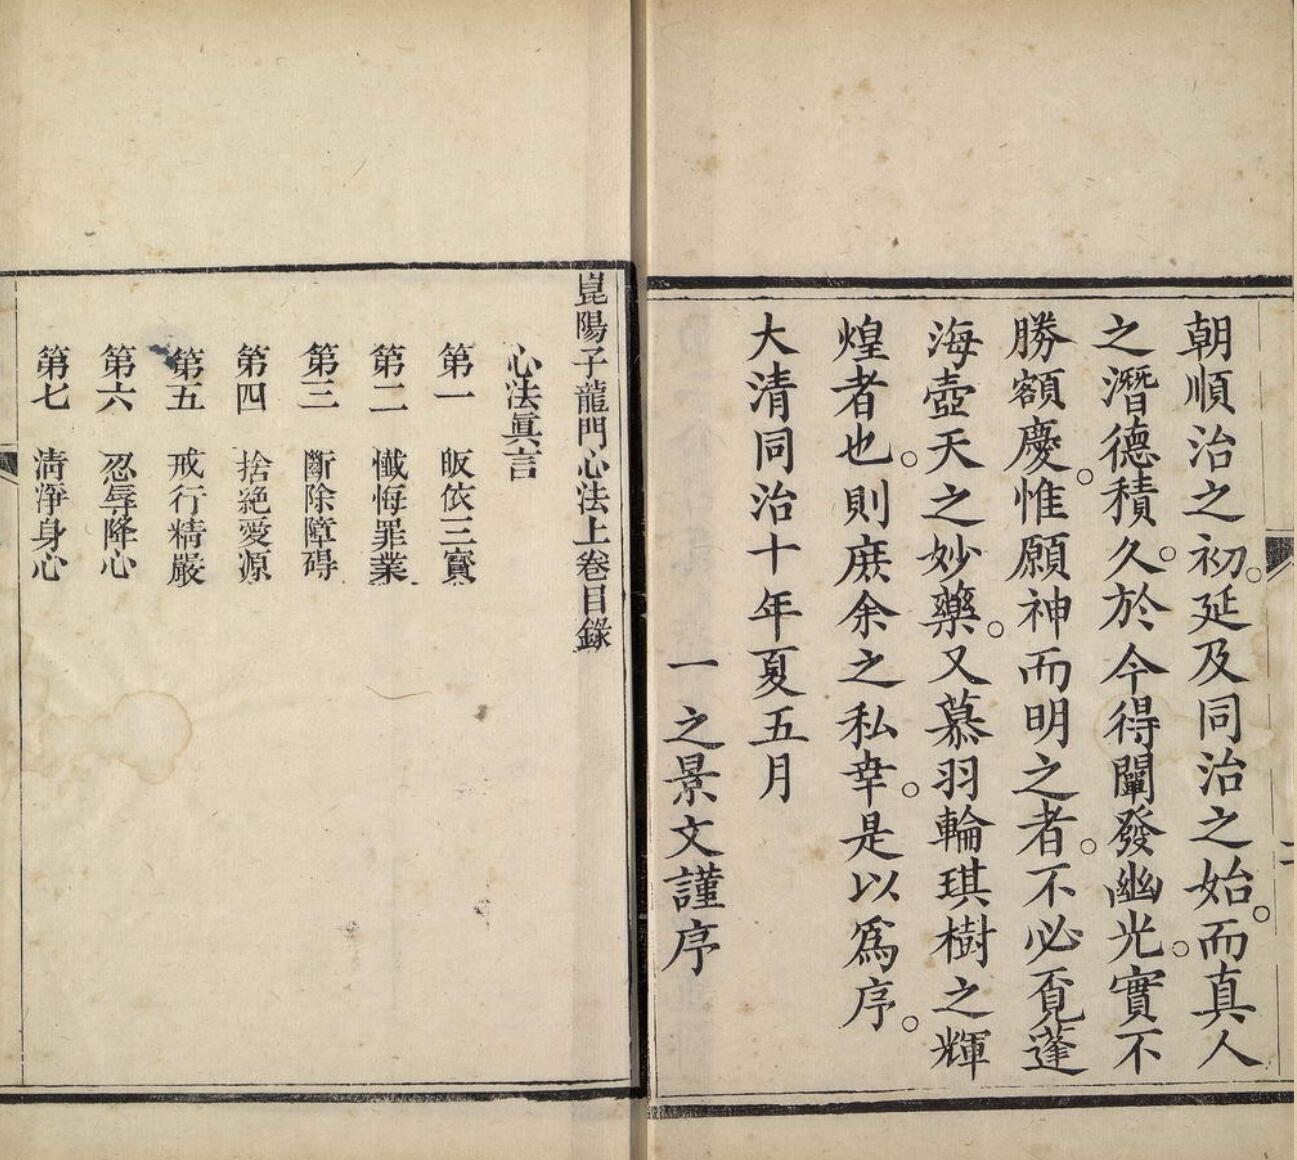 朝順治之初。延及同治之始。而真人
之潛德積久。於今得闡發幽光。實不
勝額慶。惟願神而明之者。不必覔蓬
海壺天之妙藥。又慕羽輪琪樹之輝
煌者也。則庶余之私幸。是以為序。
大清同治十年夏五月
一之景文謹序
崑陽子龍門心法上卷目錄
心法眞言
第一 皈依三寳
第二 懺悔罪業
第三 斷除障碍
第四 捨絕愛源
第五 戒行精嚴
第六 忍辱降心
第七 清淨身心